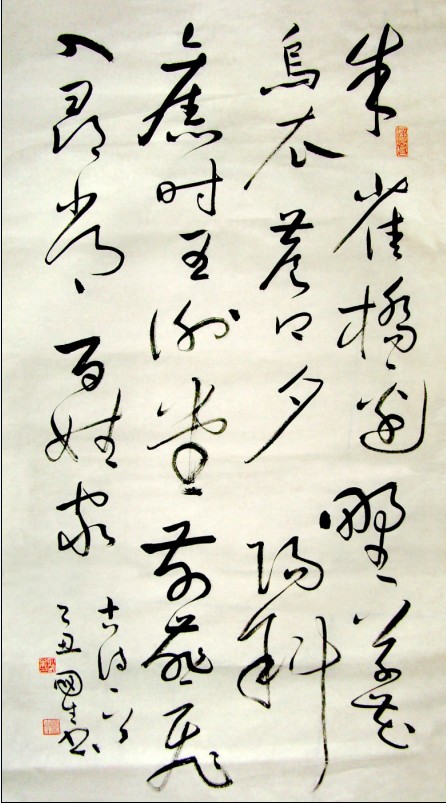 朱雀橋邊野草花
烏衣巷口夕陽斜
舊时王謝堂前燕飛
入尋常百姓家
古詩一首
乙丑國生書